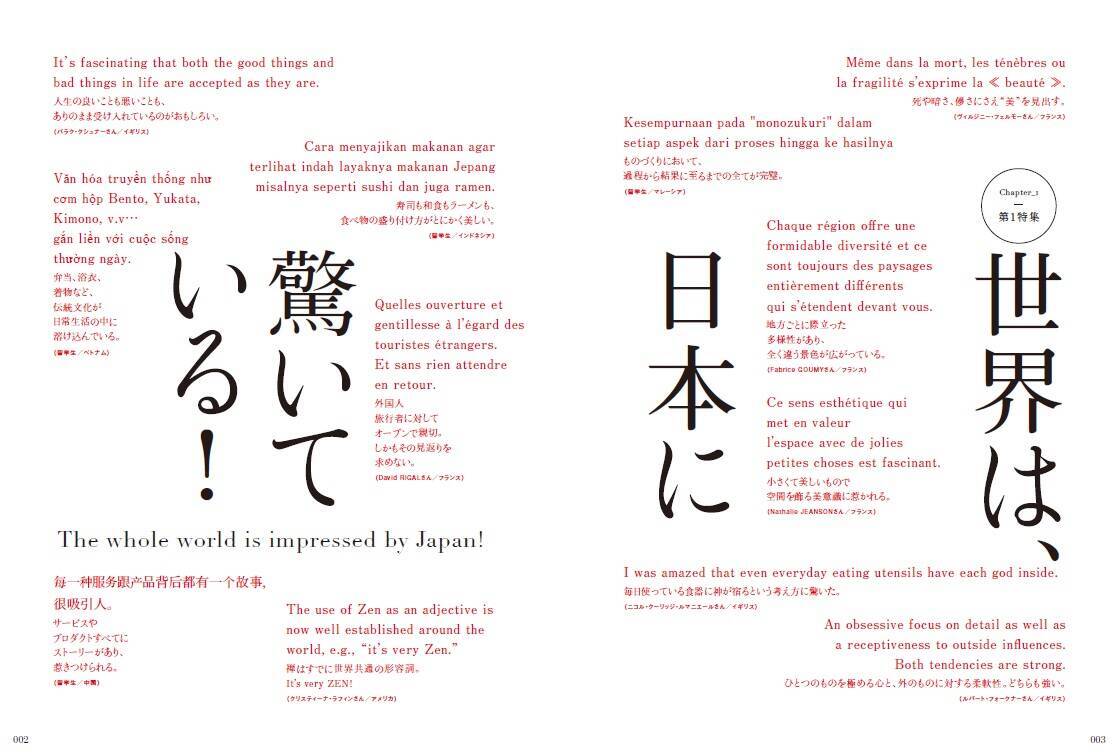 It's fascinating that both the good things and
bad things in life are accepted as they are.
人生の良いことも悪いことも、
ありのまま受け入れているのがおもしろい。
(バラク・クシュナーさん／イギリス)
Cara menyajikan makanan agar
terlihat indah layaknya makanan Jepang
misalnya seperti sushi dan juga ramen.
寿司も和食もラーメンも、
食べ物の盛り付け方がとにかく美しい。
(留学生／インドネシア)
Văn hóa truyền thống như
cơm hộp Bento, Yukata,
Kimono, v.v…
gắn liền với cuộc sống
thường ngày.
弁当、浴衣、
着物など、
伝統文化が
日常生活の中に
溶け込んでいる。
(留学生／ベトナム)
Quelles ouverture et
gentillesse à l'égard des
touristes étrangers.
Et sans rien attendre
en retour.
外国人
旅行者に対して
オープンで親切。
しかもその見返りを
求めない。
(David RIGALさん／フランス)
Même dans la mort, les ténèbres ou
la fragilité s'exprime la ≪ beauté ≫.
死や暗さ、儚さにさえ“美”を見出す。
(ヴィルジニー・フェルモーさん／フランス)
Kesempurnaan pada "monozukuri" dalam
setiap aspek dari proses hingga ke hasilnya
ものづくりにおいて、
過程から結果に至るまでの全てが完璧。
(留学生／マレーシア)
Chapter_1
第1特集
Chaque région offre une
formidable diversité et ce
sont toujours des paysages
entièrement différents
qui s'étendent devant vous.
地方ごとに際立った
多様性があり、
全く違う景色が広がっている。
(Fabrice GOUMYさん／フランス)
Ce sens esthétique qui
met en valeur
l'espace avec de jolies
petites choses est fascinant.
小さくて美しいもので
空間を飾る美意識に惹かれる。
(Nathalie JEANSONさん／フランス)
世界は、
日本に
驚いて
いる!
The whole world is impressed by Japan!
每一种服务跟产品背后都有一个故事,
很吸引人。
サービスや
プロダクトすべてに
ストーリーがあり、
惹きつけられる。
(留学生／中国)
The use of Zen as an adjective is
now well established around the
world, e.g., “it's very Zen.”
禅はすでに世界共通の形容詞。
It's very ZEN!
(クリスティーナ・ラフィンさん／アメリカ)
I was amazed that even everyday eating utensils have each god inside.
毎日使っている食器に神が宿るという考え方に驚いた。
(ニコル・クーリッジ・ルマニエールさん／イギリス)
An obsessive focus on detail as well as
a receptiveness to outside influences.
Both tendencies are strong.
ひとつのものを極める心と、外のものに対する柔軟性。どちらも強い。
(ルパート・フォークナーさん／イギリス)
002
003